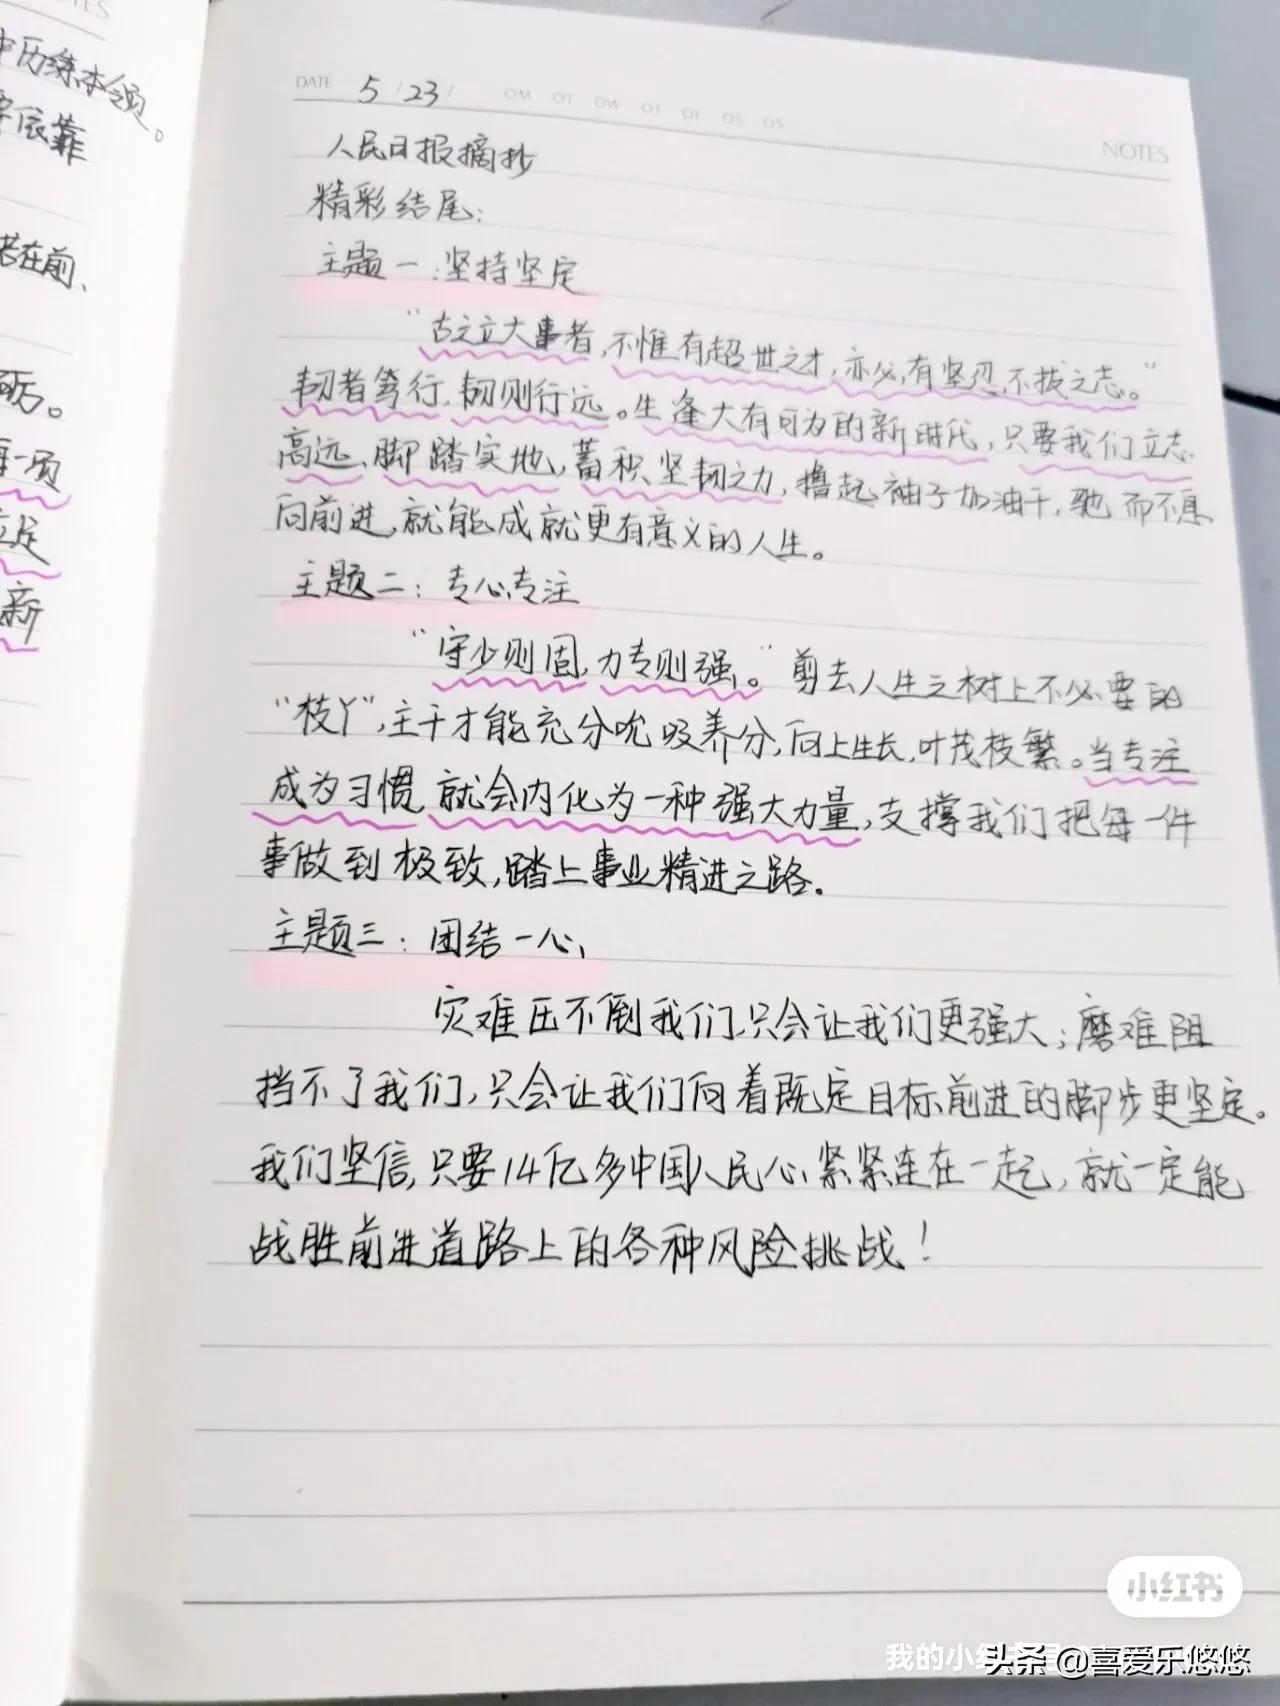 NOTES
中历练本领。
依靠
在前、
砺。
每一项
立足
新
DATE 5/23/
NOTES
人民日报摘抄
精彩结尾:
主题一:坚持坚定
“古之立大事者,不惟有超世之才,亦必有坚忍不拔之志。”
韧者笃行,韧则行远。生逢大有可为的新时代,只要我们立志
高远、脚踏实地,蓄积坚韧之力,撸起袖子加油干,驰而不息
向前进,就能成就更有意义的人生。
主题二:专心专注
“守少则固,力专则强。”剪去人生之树上不必要的
“枝丫”,主干才能充分吮吸养分,向上生长,叶茂枝繁。当专注
成为习惯,就会内化为一种强大力量,支撑我们把每一件
事做到极致,踏上事业精进之路.
主题三:团结一心
灾难压不倒我们,只会让我们更强大;磨难阻
挡不了我们,只会让我们向着既定目标前进的脚步更坚定。
我们坚信,只要14亿多中国人民心紧紧连在一起,就一定能
战胜前进道路上的各种风险挑战!
小红书
我的小红书
头条 @喜爱乐悠悠